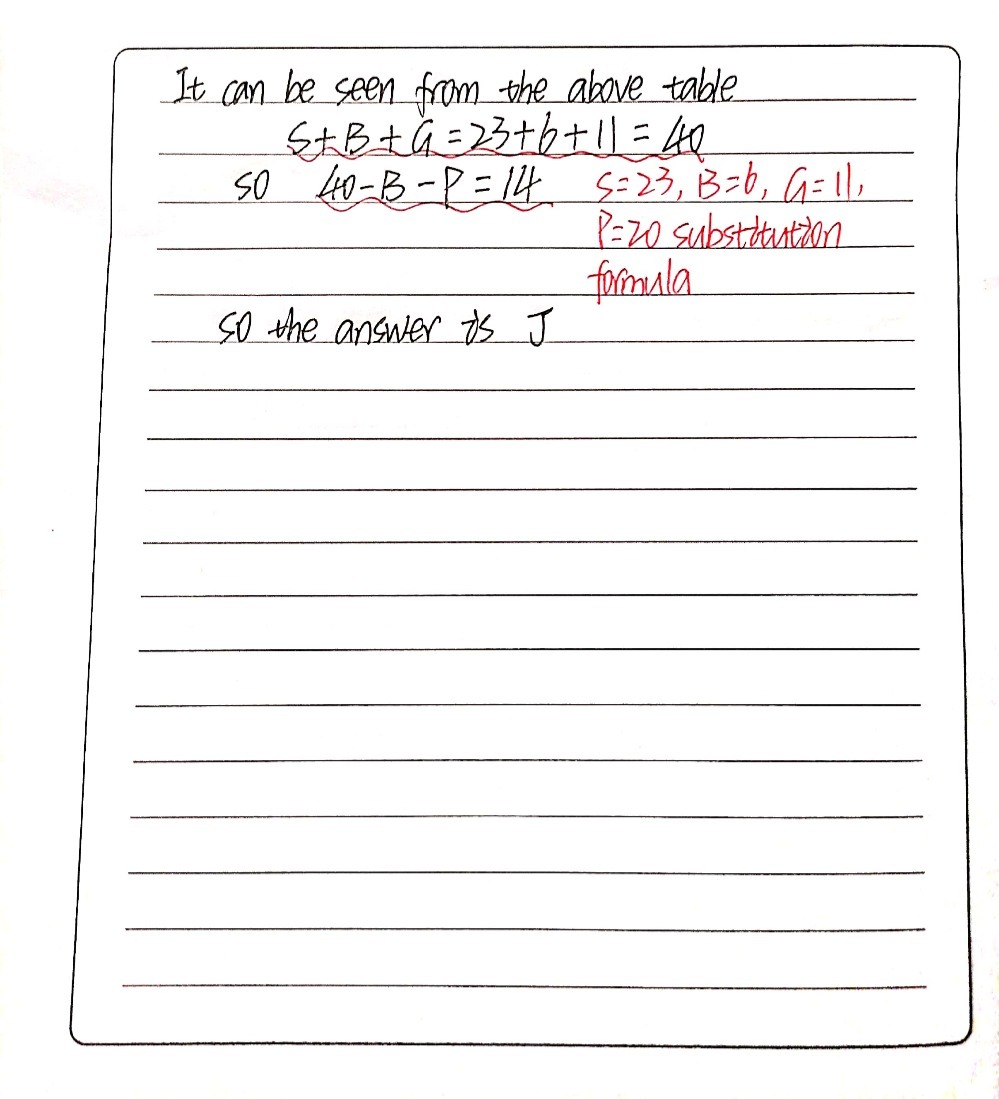 It can be seen from the above table
S+B+G=23+6+11=40
so 40-B-P=14 S=23, B=6, G=11,
P=20 substitution
formula
so the answer is J